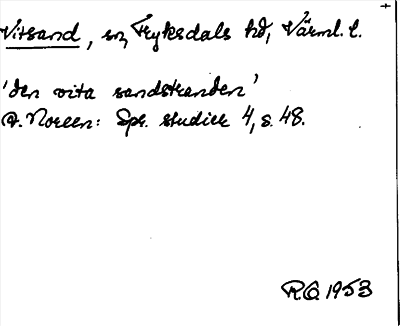 Vitsand, sn, Fryksdals hd, Värml. l.
'den vita sandstranden'
A. Noreen: Spr. studier 4, s. 48.
R.O. 1953